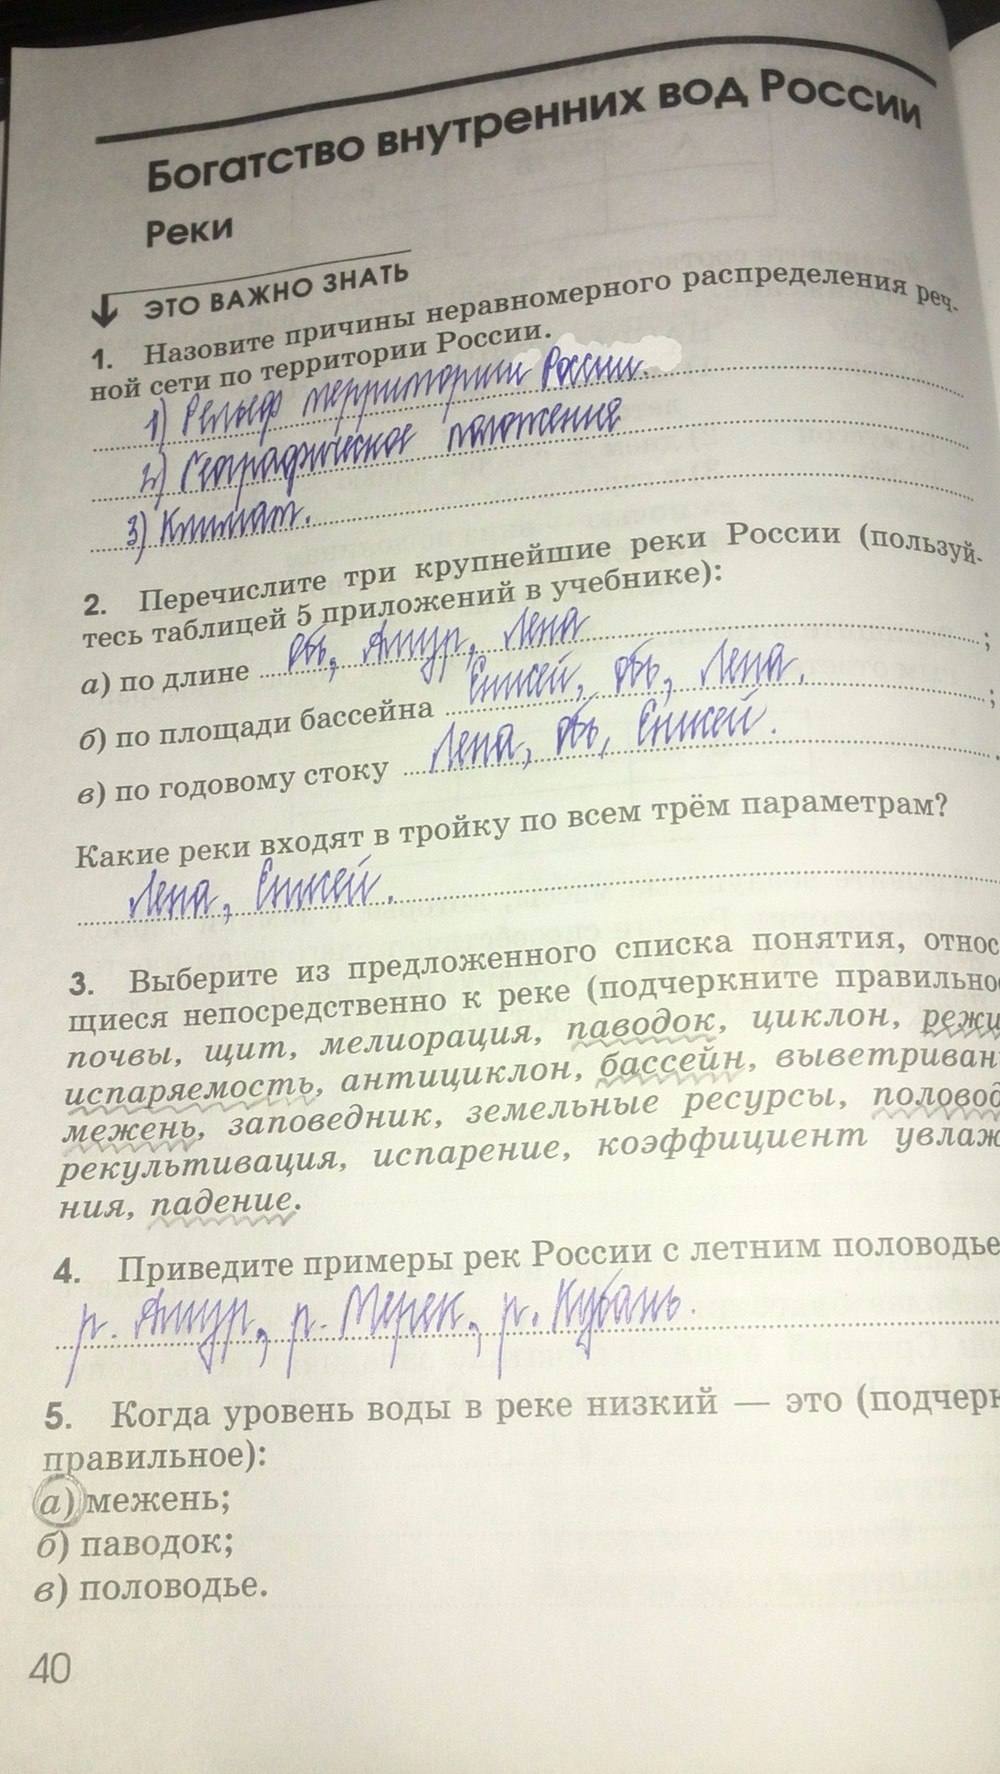 Богатство внутренних вод России
Реки
ЭТО ВАЖНО ЗНАТЬ
1. Назовите причины неравномерного распределения реч-
ной сети по территории России.
1) Рельеф территории России.
2) Географическое положения
3) Климат.
2. Перечислите три крупнейшие реки России (пользуй-
тесь таблицей 5 приложений в учебнике):
а) по длине Обь, Амур, Лена ;
б) по площади бассейна Енисей, Обь, Лена. ;
в) по годовому стоку Лена, Обь, Енисей. .
Какие реки входят в тройку по всем трём параметрам?
Лена, Енисей.
3. Выберите из предложенного списка понятия, относ
щиеся непосредственно к реке (подчеркните правильно
почвы, щит, мелиорация, паводок, циклон, режи
испаряемость, антициклон, бассейн, выветриван
межень, заповедник, земельные ресурсы, половод
рекультивация, испарение, коэффициент увлаж
ния, падение.
4. Приведите примеры рек России с летним половодье
р. Амур, р. Терек, р. Кубань.
5. Когда уровень воды в реке низкий — это (подчерк
правильное):
а) межень;
б) паводок;
в) половодье.
40